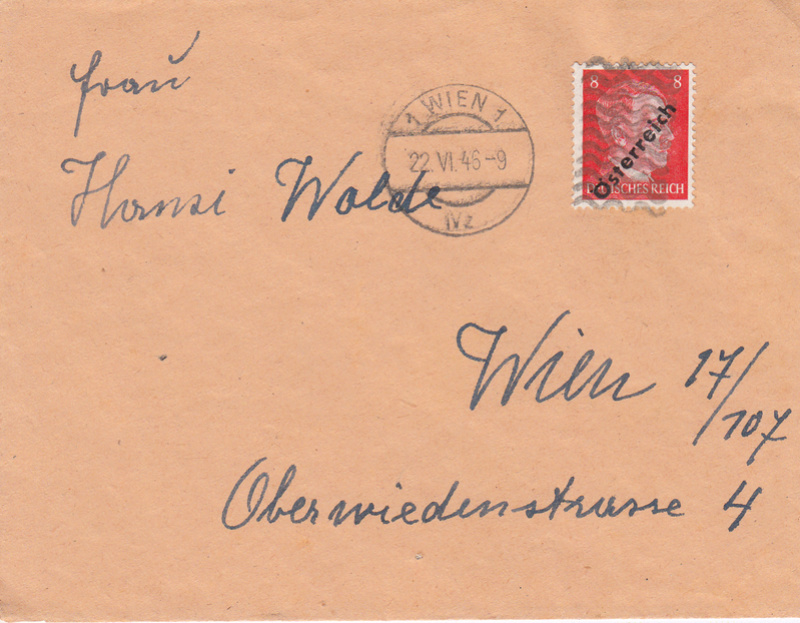 Frau
1 WIEN 1
22 VI. 46-9
IVz
8 8
Österreich
DEUTSCHES REICH
Hansi Walde
Wien 17/
/107
Oberwiedenstrasse 4